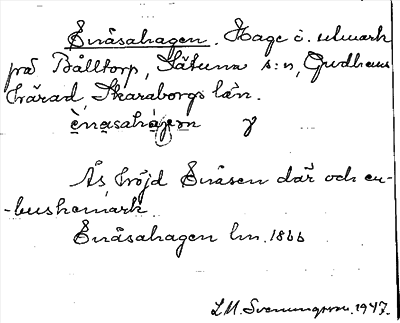 Enåsahagen. Hage i utmark
på Bålltorp, Sätuna s:n, Gudhems
härad, Skaraborgs län.
ènasahájen
Ås, höjd Enåsen där och en-
-buskemark
Enåsahagen lm. 1866
L.M. Svenungsson. 1947.